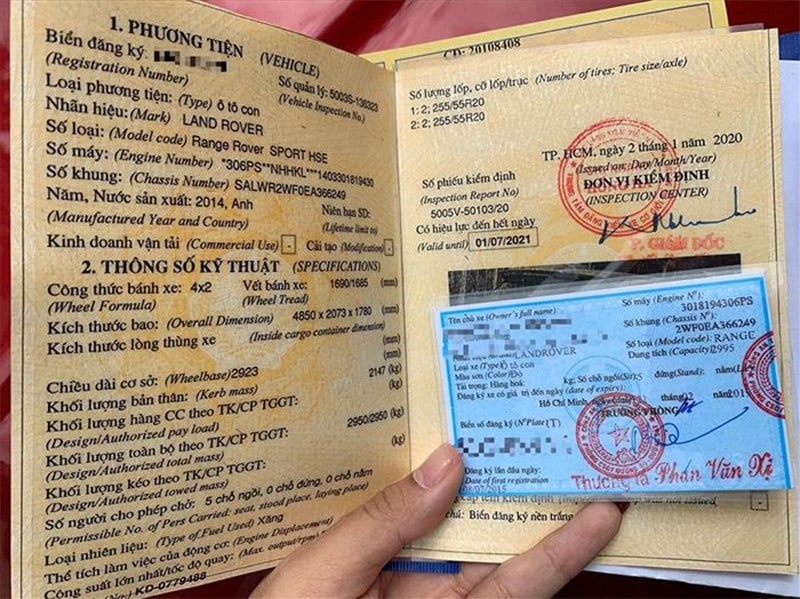 1. PHƯƠNG TIỆN (VEHICLE)
Biển đăng ký:
(Registration Number)
Số quản lý: 5003S-136323
(Vehicle Inspection No.)
Loại phương tiện: (Type) ô tô con
Nhãn hiệu: (Mark) LAND ROVER
Số loại: (Model code) Range Rover SPORT HSE
Số máy: (Engine Number) *306PS**NHHKL***1403301819430
Số khung: (Chassis Number) SALWR2WF0EA366249
Năm, Nước sản xuất: 2014, Anh
Niên hạn SD:
(Manufactured Year and Country)
(Lifetime limit to)
Kinh doanh vận tải (Commercial Use) - Cải tạo (Modification) -
2. THÔNG SỐ KỸ THUẬT (SPECIFICATIONS)
Công thức bánh xe: 4x2 Vết bánh xe: 1690/1685 (mm)
(Wheel Formula) (Wheel Tread)
Kích thước bao: (Overall Dimension) 4850 x 2073 x 1780 (mm)
Kích thước lòng thùng xe (Inside cargo container dimension)
(mm)
Chiều dài cơ sở: (Wheelbase) 2923 (mm)
Khối lượng bản thân: (Kerb mass) 2147 (kg)
Khối lượng hàng CC theo TK/CP TGGT:
(Design/Authorized pay load) (kg)
Khối lượng toàn bộ theo TK/CP TGGT: 2950/2950 (kg)
(Design/Authorized total mass)
Khối lượng kéo theo TK/CP TGGT: (kg)
(Design/Authorized towed mass)
Số người cho phép chở: 5 chỗ ngồi, 0 chỗ đứng, 0 chỗ nằm
(Permissible No. of Pers Carried: seat, stood place, laying place)
Loại nhiên liệu: (Type of Fuel Used) Xăng
Thể tích làm việc của động cơ: (Engine Displacement)
Công suất lớn nhất/tốc độ quay: (Max. output/rpm)
KD-0779488
CĐ: 20108408
Số lượng lốp, cỡ lốp/trục (Number of tires; Tire size/axle)
1: 2; 255/55R20
2: 2; 255/55R20
TP. HCM, ngày 2 tháng 1 năm 2020
(Issued on: Day/Month/Year)
Số phiếu kiểm định
ĐƠN VỊ KIỂM ĐỊNH
(Inspection Report No)
(INSPECTION CENTER)
5005V-50103/20
Có hiệu lực đến hết ngày
(Valid until) 01/07/2021
P. GIÁM ĐỐC
Tên chủ xe (Owner's full name):
Số máy (Engine N°):
3018194306PS
Số khung (Chassis N°):
2WF0EA366249
LANDROVER
Số loại (Model code): RANGE
Loại xe (Type) ô tô con
Dung tích (Capacity): 2995
Màu sơn (Color) Đỏ
Tải trọng: Hàng hoá: kg; Số chỗ ngồi (Sit): 5 đứng (Stand): nằm
Đăng ký xe có giá trị đến ngày (date of expiry):
Hồ Chí Minh, tháng 02 năm 201
TRƯỞNG PHÒNG
Biển số đăng ký (N° Plate) (T)
Đăng ký lần đầu ngày:
Date of first registration
Thượng tá Phan Văn Xệ
was not issued
Biển đăng ký nền trắng